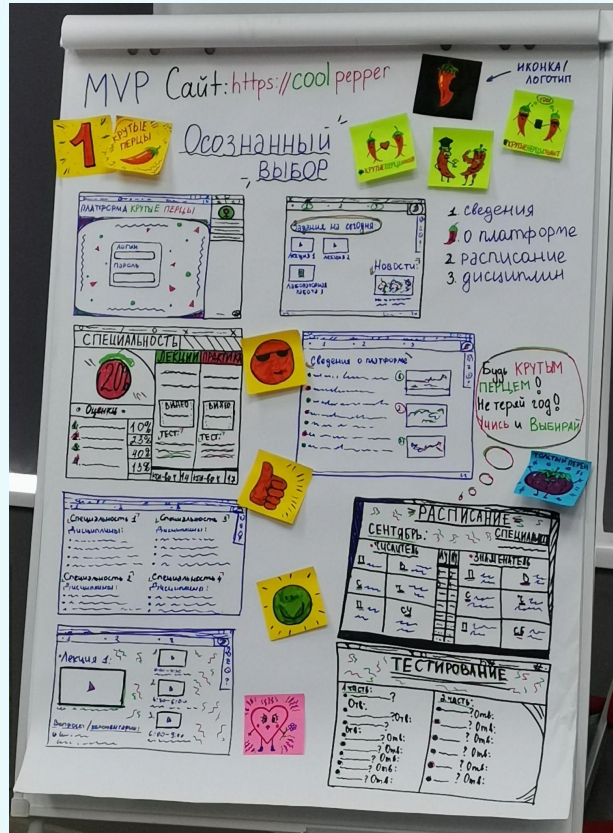 MVP Сайт: https://coolpepper
ИКОНКА/
ЛОГОТИП
1
КРУТЫЕ
ПЕРЦЫ
"Осознанный
ВЫБОР"
1. сведения
о платформе
2. расписание
3. дисциплин
ПЛАТФОРМА КРУТЫЕ ПЕРЦЫ
ЛОГИН
ПАРОЛЬ
Задания на сегодня:
ЛЕКЦИЯ 1
ЛЕКЦИЯ 2
ЛАБОРАТОРНАЯ
НОВОСТИ:
СПЕЦИАЛЬНОСТЬ
ЛЕКЦИИ ПРАКТИКА
20%
ВИДЕО
ВИДЕО
ТЕСТ:
ТЕСТ:
Оценки
10%
23%
40%
13%
Сведения о платформе
1
2
3
Будь КРУТЫМ
ПЕРЦЕМ!
Не теряй год!
Учись и Выбирай
Специальность 1
Дисциплины:
Специальность 3
Дисциплины:
Специальность 2
Дисциплины:
Специальность 4
Дисциплины:
РАСПИСАНИЕ
СЕНТЯБРЬ:
ЧИСЛИТЕЛЬ
ЗНАМЕНАТЕЛЬ
Лекция 1:
Вопросы/комментарии:
6:00-9:00
ТЕСТИРОВАНИЕ
1 часть:
? Отв:
? Отв:
? Отв:
? Отв:
? Отв:
? Отв:
2 часть:
? Отв:
? Отв:
? Отв:
? Отв:
? Отв:
? Отв:
? Отв: